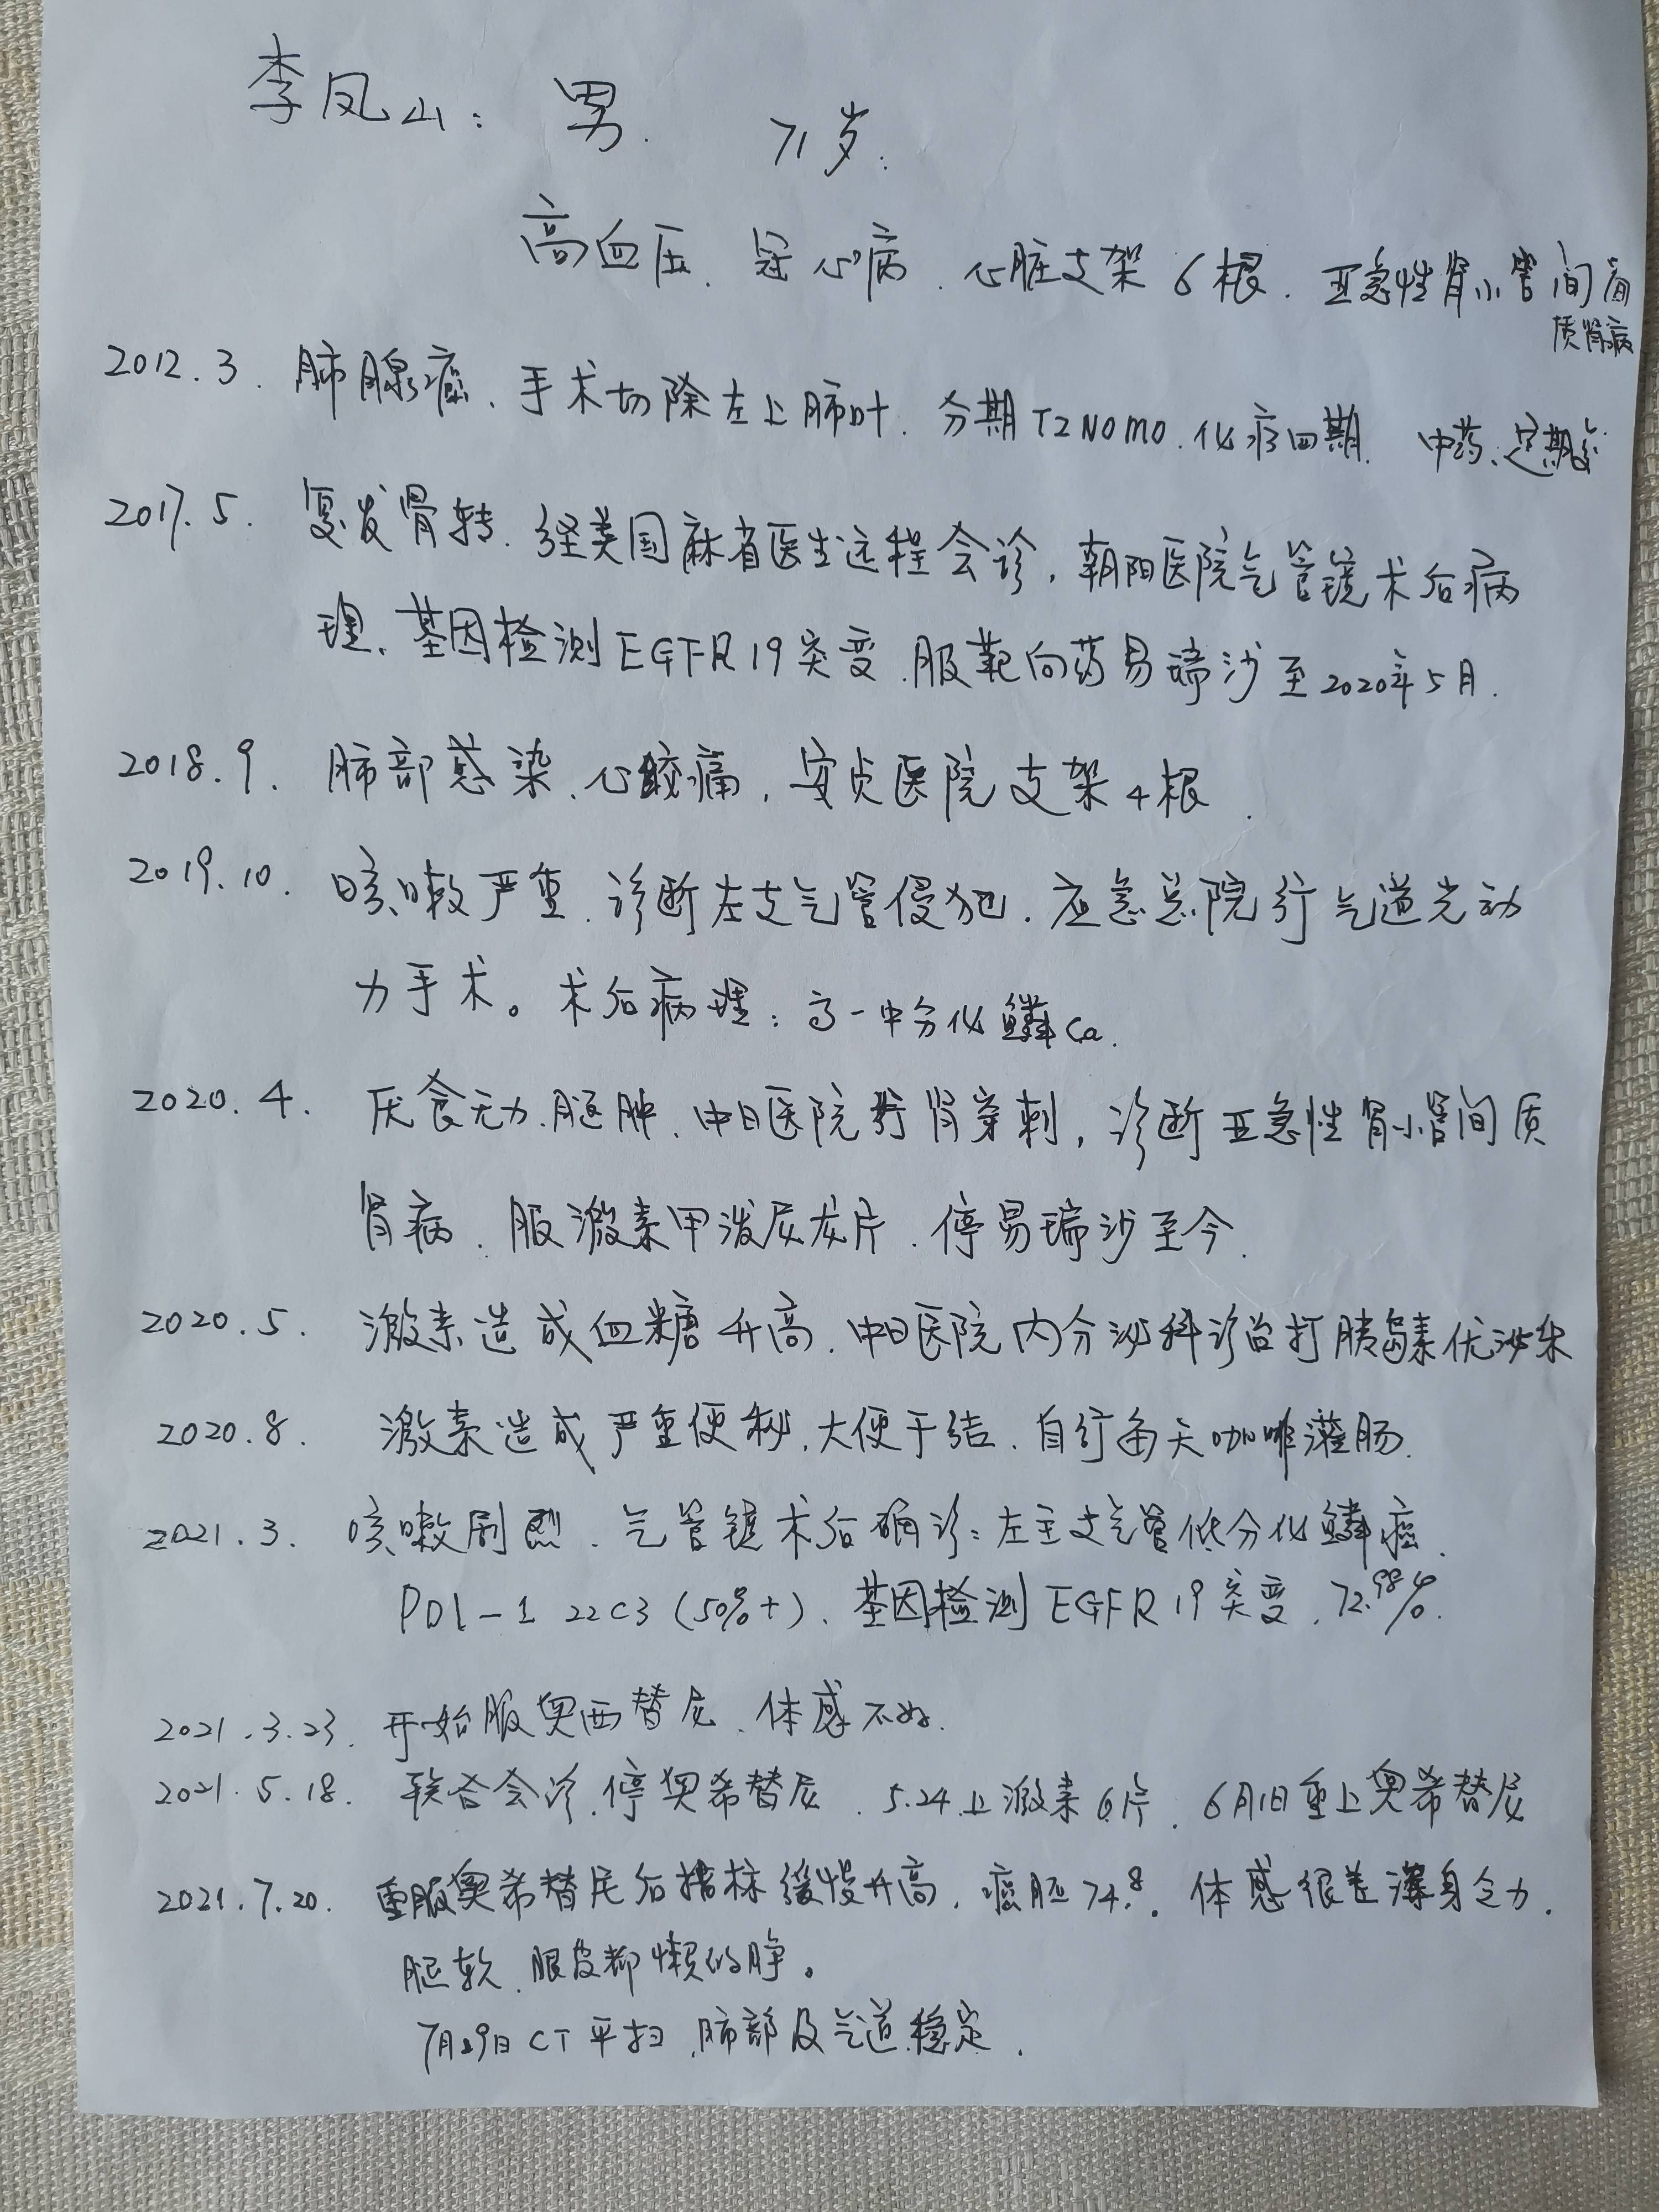 李凤山: 男. 71岁.
高血压. 冠心病. 心脏支架6根. 亚急性肾小管间
质肾病
2012.3. 肺腺癌、手术切除左上肺叶. 分期T2N0M0. 化疗四期. 中药、定期
2017.5. 复发骨转. 经美国麻省医生远程会诊, 朝阳医院气管镜术后病
理、基因检测EGFR19突变. 服靶向药易瑞沙至2020年5月.
2018.9. 肺部感染、心绞痛, 安贞医院支架4根.
2019.10. 咳嗽严重. 诊断左支气管侵犯. 应急总院行气道光动
力手术。术后病理: 高-中分化鳞Ca.
2020.4. 厌食无力、腿肿、中日医院行肾穿刺, 诊断亚急性肾小管间质
肾病. 服激素甲泼尼龙片. 停易瑞沙至今.
2020.5. 激素造成血糖升高. 中日医院内分泌科诊治打胰岛素优泌乐
2020.8. 激素造成严重便秘, 大便干结. 自行每天咖啡灌肠.
2021.3. 咳嗽剧烈. 气管镜术后确诊: 左主支气管低分化鳞癌.
PDL-1 22C3 (50%+). 基因检测EGFR19突变. 72.98%.
2021.3.23. 开始服奥西替尼. 体感不好.
2021.5.18. 联合会诊, 停奥希替尼. 5.24上激素6片. 6月1日重上奥希替尼
2021.7.20. 重服奥希替尼后指标缓慢升高, 癌胚74.8. 体感很差浑身乏力.
腿软、眼皮都懒的睁。
7月29日CT平扫, 肺部及气道稳定.